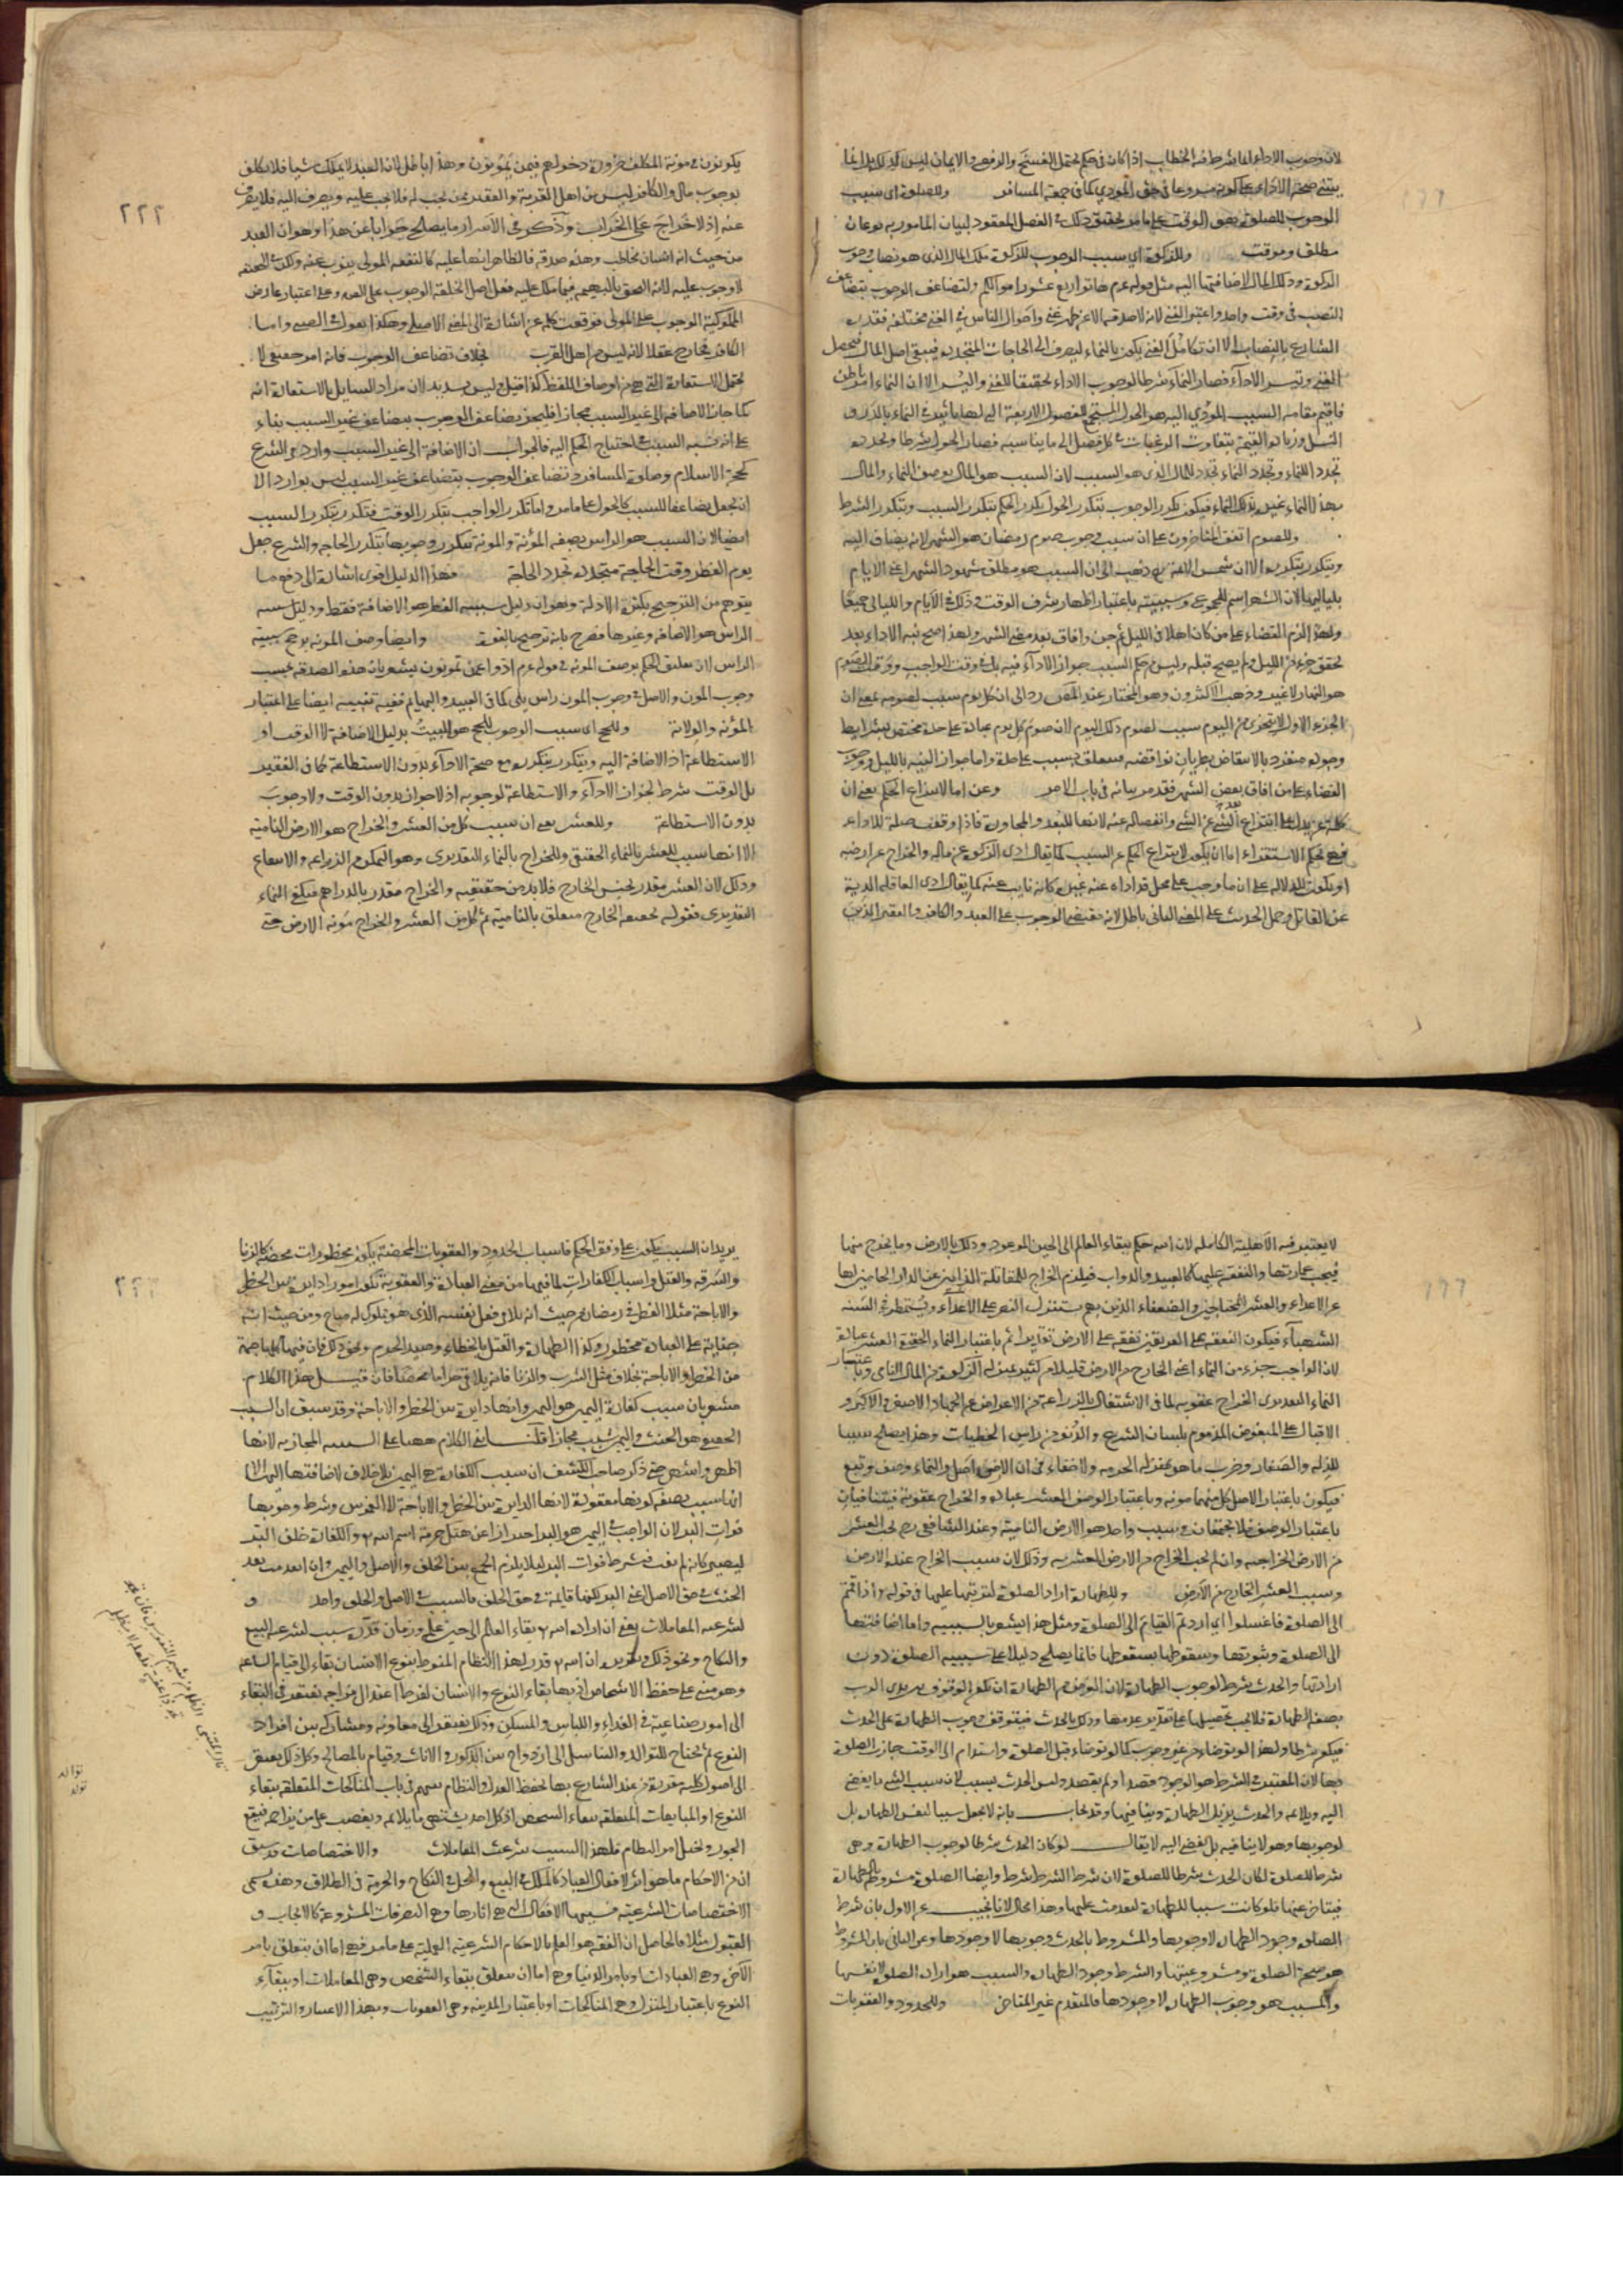 لان وجوب الاداء انما شرط فيه الخطاب اذا كان في حكم يحتمل الفسخ والرفع والايمان ليس كذلك انما
يبتنى صحة الاداء على كونه مشروعا في حق المؤدي كما في جمعة المسافر وللصلوة اي سبب
الوجوب للصلوة هو الوقت على ما مر تحقيق ذلك في الفصل المعقود لبيان المامور به نوعان
مطلق وموقت وللزكوة اي سبب الوجوب للزكوة ملك المال الذي هو نصاب وجوب
الزكوة وذلك المال لاضافتها اليه مثل قوله عم هاتوا ربع عشور اموالكم ولتضاعف الوجوب بتضاعف
النصب في وقت واحد واعتبر الغنى لانه لا صدقة الا عن ظهر غنى واحوال الناس في الغنى مختلفة فقدره
الشارع بالنصاب الا ان تكامل الغنى يكون بالنماء ليصرف الى الحاجات المتجددة فيبقى اصل المال فيحصل
الغنى وتيسر الاداء فصار النماء شرطا لوجوب الاداء تحقيقا للغنى واليسر الا ان النماء امر باطن
فاقيم مقامه السبب المؤدي اليه هو الحول المستجمع للفصول الاربعة التي لها تاثير في النماء بالدر و
النسل وزيادة القيمة بتفاوت الرغبات في كل فصل الى ما يناسبه فصار الحول شرطا وتجدده
تجدد للنماء وتجدد النماء تجدد للمال الذي هو السبب لان السبب هو المال بوصف النماء والمال
بهذا النماء غيره بذلك النماء فيكون تكرر الوجوب بتكرر الحول تكرر الحكم بتكرر السبب وبتكرر الشرط
وللصوم اتفق المتاخرون على ان سبب وجوب صوم رمضان هو الشهر لانه يضاف اليه
ويتكرر بتكرره الا ان شمس الائمة رح ذهب الى ان السبب هو مطلق شهود الشهر اعني الايام
بلياليها لان الشهر اسم للمجموع وسببيته باعتبار اظهار شرف الوقت وذلك في الايام والليالي جميعا
ولهذا لزم القضاء على من كان اهلا في الليل ثم جن وافاق بعد مضي الشهر ولهذا صح نية الاداء بعد
تحقق جزء من الليل ولم يصح قبله وليس من حكم السبب جواز الاداء فيه بل في وقت الواجب ووقت الصوم
هو النهار لا غير وذهب الاكثرون وهو المختار عند المص رد الى ان كل يوم سبب لصومه بمعنى ان
الجزء الاول لا يتجزى من اليوم سبب لصوم ذلك اليوم لان صوم كل يوم عبادة على حدة مختص بشرايط
وجوده منفرد بالانتقاض بطريان نواقضه فيتعلق بسبب على حدة واما جواز النية بالليل ووجوب
القضاء على من افاق بعض الشهر فقد مر بيانه في باب الامر وعن اما لانتزاع الحكم يعني ان
كلمة عن يدل على انتزاع الشيء عن الشيء وانفصاله عنه لانها للبعد والمجاوزة فاذا وقعت صلة للاداء
فهي بحكم الاستقراء اما ان يكون لانتزاع الحكم عن السبب كما يقال ادى الزكوة عن ماله والخراج عن ارضه
او يكون للدلالة على ان ما وجب على محل قد اداه عنه غيره كانه نايب عنه كما يقال ادى العاقلة الدية
عن القاتل وحمل الحديث على المعنى الثاني باطل لانه يقتضي الوجوب على العبد والكافر والفقير الذين
٢٢٢
يكونون في مؤنة المكلف ضرورة دخولهم فيمن تمونون وهذا باطل لان العبد لا يملك شيا فلا يكلف
بوجوب مال والكافر ليس من اهل القربة والفقير ممن تجب له فلا تجب عليه ويصرف اليه فلا يصرف
عنه اذ لا خراج على الخراب وذكر في الاسرار ما يصلح جوابا عن هذا وهو ان العبد
من حيث انه انسان مخاطب وهذه صدقة فالظاهر انها عليه كالنفقة المولى ينوب عنه ولكن في الحقيقة
لا وجوب عليه لانه الحق بالبهيمة فيما ملك عليه فعلى اصل الخلقة الوجوب على العبد وعلى اعتبار عارض
المملوكية الوجوب على المولى فوقعت كلمة عن اشارة الى المعنى الاصلي وهكذا نقول في الصبي واما
الكافر فخارج عقلا لانه ليس من اهل القربة بخلاف تضاعف الوجوب فانه امر حقيقي لا
يحتمل الاستعارة التي هي من اوصاف اللفظ كذا قيل وليس بسديد لان مراد السايل بالاستعارة انه
كما جاز الاضافة الى غير السبب مجازا فليجز تضاعف الوجوب بتضاعف غير السبب بناء
على انه يشبه السبب في احتياج الحكم اليه فالجواب ان الاضافة الى غير السبب وارد في الشرع
كحجة الاسلام وصلوة المسافر وتضاعف الوجوب بتضاعف غير السبب ليس بوارد الا
ان يجعل تضاعفا للسبب كالحول على ما مر واما تكرر الواجب بتكرر الوقت فتكرر بتكرر السبب
ايضا لان السبب هو الراس بصفة المؤنة والمؤنة يتكرر وجوبها بتكرر الحاجة والشرع جعل
يوم الفطر وقت الحاجة فتجدده تجدد الحاجة فهذا الدليل اقوى اشارة الى دفع ما
يتوهم من الترجيح بكثرة الادلة وهو ان دليل سببية الفطر هو الاضافة فقط ودليل سببية
الراس هو الاضافة وغيرها فصرح بانه ترجيح بالقوة وايضا وصف المؤنة يرجح سببية
الراس لان تعليق الحكم بوصف المؤنة في قوله عم ادوا عمن تمونون يشعر بان هذه الصدقة تجب
وجوب المؤن والاصل في وجوب المؤن راس يلي كما في العبيد والبهايم ففيه تنبيه ايضا على اعتبار
المؤنة والولاية وللحج اي سبب الوجوب للحج هو البيت بدليل الاضافة لا الوقت او
الاستطاعة اذ لا اضافة اليه ويتكرر بتكرره مع صحة الاداء بدون الاستطاعة كما في الفقير
بل الوقت شرط لجواز الاداء والاستطاعة لوجوبه اذ لا جواز بدون الوقت ولا وجوب
بدون الاستطاعة وللعشر يعني ان سبب كل من العشر والخراج هو الارض النامية
الا انها سبب للعشر بالنماء الحقيقي وللخراج بالنماء التقديري وهو التمكن من الزراعة والانتفاع
وذلك لان العشر مقدر بجنس الخارج فلا بد من حقيقته والخراج مقدر بالدراهم فيكفي النماء
التقديري فقوله بحقيقة الخارج متعلق بالنامية ثم كل من العشر والخراج مؤنة للارض حتى
لا يعتبر فيه الاهلية الكاملة لان الله حكم ببقاء العالم الى الحين الموعود وذلك بالارض وما يخرج منها
فيجب عمارتها والنفقة عليها كالعبيد والدواب فيلزم الخراج للمقاتلة الذابين عن الدار الحامين لها
عن الاعداء والعشر للمحتاجين والضعفاء الذين بهم يستنزل النصر على الاعداء ويستمطر في السنة
الشهباء فيكون النفقة على الفريقين نفقة على الارض تقديرا ثم باعتبار النماء الحقيقي العشر عبادة
لان الواجب جزء من النماء اعني الخارج من الارض قليلا من كثير بمنزلة الزكوة من المال النامي وباعتبار
النماء التقديري الخراج عقوبة لما في الاشتغال بالزراعة من الاعراض عن الجهاد الاصغر والاكبر و
الاقبال على المبغوض المذموم بلسان الشرع والدنو من راس الخطيات وهذا يصلح سببا
للذلة والصغار وضرب ما هو بمنزلة الجزية ولا خفاء في ان الارض اصل والنماء وصف وتبع
فيكون باعتبار الاصل كل منهما مؤنة وباعتبار الوصف العشر عبادة والخراج عقوبة فيتنافيان
باعتبار الوصف فلا يجتمعان في سبب واحد هو الارض النامية وعند الشافعي رح يجب العشر
من الارض الخراجية وان لم يجب الخراج من الارض العشرية وذلك لان سبب الخراج عنده الارض
وسبب العشر الخارج من الارض وللطهارة ارادة الصلوة لترتبها عليها في قوله تع اذا قمتم
الى الصلوة فاغسلوا اي اردتم القيام الى الصلوة ومثل هذا يشعر بالسببية واما اضافتها
الى الصلوة وثبوتها وسقوطها بسقوطها فانما يصلح دليلا على سببية الصلوة دون
ارادتها والحدث شرط لوجوب الطهارة لان الغرض من الطهارة ان يكون الوقوف بين يدي الرب
بصفة الطهارة فلا يجب تحصيلها الا على تقدير عدمها وذلك بالحدث فيتوقف وجوب الطهارة على الحدث
فيكون شرطا ولهذا لو توضاء من غير وجوب كما لو توضاء قبل الصلوة واستدام الى الوقت جازت الصلوة
بها لان المعتبر في الشرط هو الوجود قصد او لم يقصد وليس الحدث بسبب لان سبب الشيء ما يفضي
اليه ويلايمه والحدث يزيل الطهارة وينافيها وقد يجاب بانه لا يجعل سببا لنفس الطهارة بل
لوجوبها وهو لا ينافيه بل يفضي اليه لا يقال لو كان الحدث شرطا لوجوب الطهارة وهي
شرط للصلوة لكان الحدث شرطا للصلوة لان شرط الشرط شرط وايضا الصلوة مشروطة بالطهارة
فيتاخر عنها فلو كانت سببا للطهارة لتقدمت عليها وهذا محال لانا نجيب عن الاول بان شرط
الصلوة وجود الطهارة لا وجوبها والمشروط بالحدث وجوبها لا وجودها وعن الثاني بان المشروط
هو صحة الصلوة ومشروعيتها والشرط وجود الطهارة والسبب هو ارادة الصلوة لا نفسها
والمسبب هو وجوب الطهارة لا وجودها فالمتقدم غير المتاخر وللحدود والعقوبات
يريد ان السبب يكون على وفق الحكم فاسباب الحدود والعقوبات المحضة يكون محظورات محضة كالزنا
والسرقة والقتل واسباب الكفارات لما فيها من معنى العبادة والعقوبة تكون امورا دايرة بين الحظر
والاباحة مثلا الفطر في رمضان من حيث انه يلاقي فعل نفسه الذي هو مملوك له مباح ومن حيث انه
جناية على العبادة محظور وكذا الظهار والقتل الخطاء وصيد الحرم ونحو ذلك فان فيها كلها جهة
من الحظر والاباحة بخلاف مثل الشرب والزنا فانه يلاقي حراما محضا فان قيل هذا الكلام
مشعر بان سبب كفارة اليمين هو اليمين وانها دايرة بين الحظر والاباحة وقد سبق ان السبب
الحقيقي هو الحنث واليمين سبب مجازا قلنا بنى الكلام ههنا على السببية المجازية لانها
اظهر واشهر حتى ذكر صاحب الكشف ان سبب الكفارة هي اليمين بلا خلاف لاضافتها اليها الا
انها سبب بصفة كونها معقودة لانها الدايرة بين الحظر والاباحة لا الغموس وشرط وجوبها
فوات البر لان الواجب في اليمين هو البر احترازا عن هتك حرمة اسم الله تع والكفارة خلف البر
ليصير كانه لم يفت فيشرط فوات البر ليلا يلزم الجمع بين الخلف والاصل واليمين وان انعدمت بعد
الحنث في حق الاصل اعني البر لكنها قايمة في حق الخلف فالسبب في الاصل والخلف واحد و
لشرعية المعاملات يعني ان ارادة الله تع بقاء العالم الى حين علم وزمان قدر سبب لشرعية البيع
والنكاح ونحو ذلك وتقريره ان الله تع قدر لهذا النظام المنوط بنوع الانسان بقاء الى قيام الساعة
وهو مبني على حفظ الاشخاص اذ بها بقاء النوع والانسان لفرط اعتدال مزاجه يفتقر في البقاء
الى امور صناعية في الغذاء واللباس والمسكن وذلك يفتقر الى معاونة ومشاركة بين افراد
النوع ثم يحتاج للتوالد والتناسل الى ازدواج بين الذكور والاناث وقيام بالمصالح وكل ذلك يفتقر
الى اصول كلية مقررة من عند الشارع بها يحفظ العدل والنظام بينهم في باب المناكحات المتعلقة ببقاء
النوع والمبايعات المتعلقة ببقاء الشخص اذ كل احد يشتهي ما يلايمه ويغضب على من يزاحمه فيقع
الجور ويختل امر النظام فلهذا السبب شرعت المعاملات والاختصاصات قد سبق
ان من الاحكام ما هو اثر لافعال العباد كالملك في البيع والحل في النكاح والحرمة في الطلاق وهذه تسمى
الاختصاصات الشرعية فسببها الافعال التي هي اثارها وهي التصرفات المشروعة كالايجاب و
القبول مثلا والحاصل ان الفقه هو العلم بالاحكام الشرعية العملية على ما مر فهي اما ان يتعلق بامر
الآخرة وهي العبادات او بامر الدنيا وهي اما ان يتعلق ببقاء الشخص وهي المعاملات او ببقاء
النوع باعتبار المنزل وهي المناكحات او باعتبار المدينة وهي العقوبات وبهذا الاعتبار والترتيب
توالد
تولد